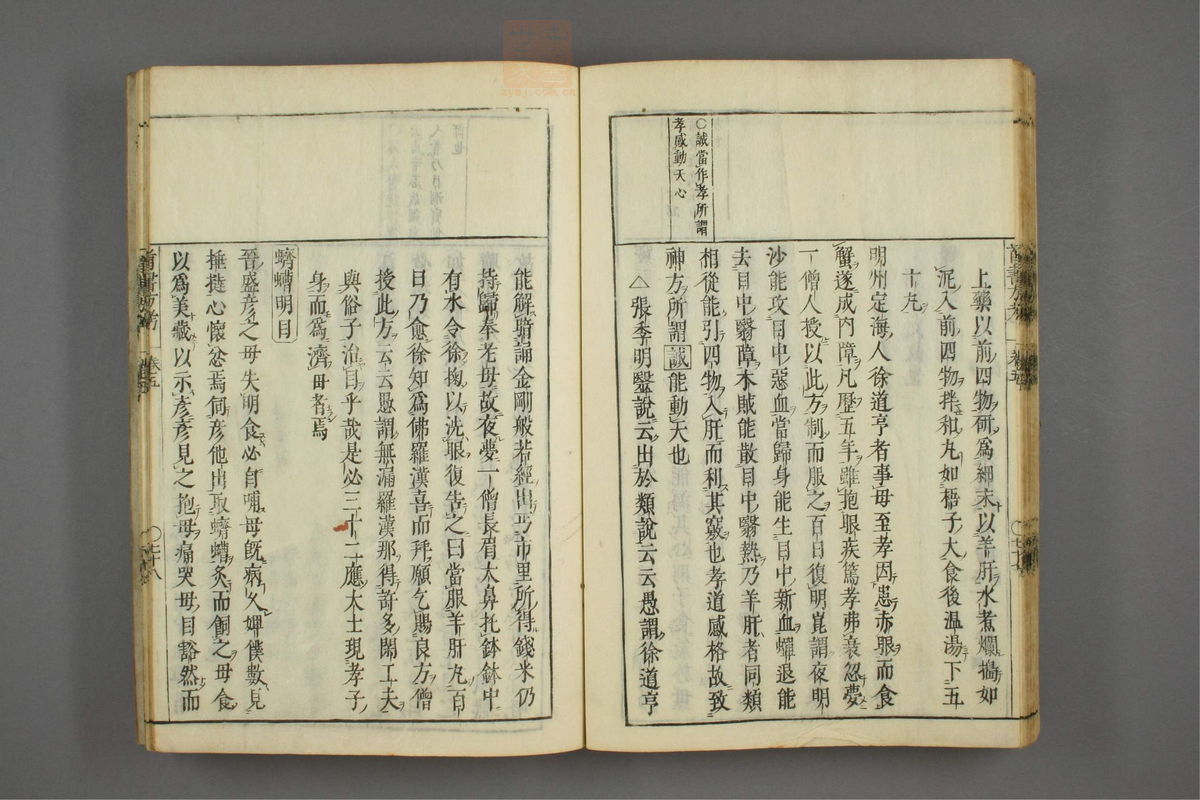 ○誠當作孝所謂
孝感動天心
上藥以前四物研爲細末以羊肝水煮爛搗如
泥入前四物拌和丸如梧子大食後温湯下五
十丸
明州定海人徐道亨者事母至孝因患赤眼而食
蟹遂成内障凡歷五年雖抱眼疾篤孝弗衰忽夢
一僧人授以此方制而服之百日復明崑謂夜明
沙能攻目中惡血當歸身能生目中新血蟬退能
去目中翳障木賊能散目中翳熱乃羊肝者同類
相從能引四物入肝而利其竅也孝道感格故致
神方所謂誠能動天也
△張季明毉說云出於類說云云愚謂徐道亨
能解暗誦金剛般若經出丐市里所得錢米仍
持歸奉老母故夜夢一僧長眉大鼻托鉢鉢中
有水令徐掬以洗眼復告之曰當服羊肝丸百
日乃愈徐知爲佛羅漢喜而拜願乞賜良方僧
授此方云云愚謂無漏羅漢那得許多閑工夫
與俗子治目乎哉是必三十二應大士現孝子
身而爲濟母者焉
蠐螬明目
晉盛彦之母失明食必自哺母旣病久婢僕數見
捶撻心懷忿焉伺彦他出取蠐螬炙而餉之母食
以爲美藏以示彦彦見之抱母痛哭母目豁然而
卷五
七十八
卷五